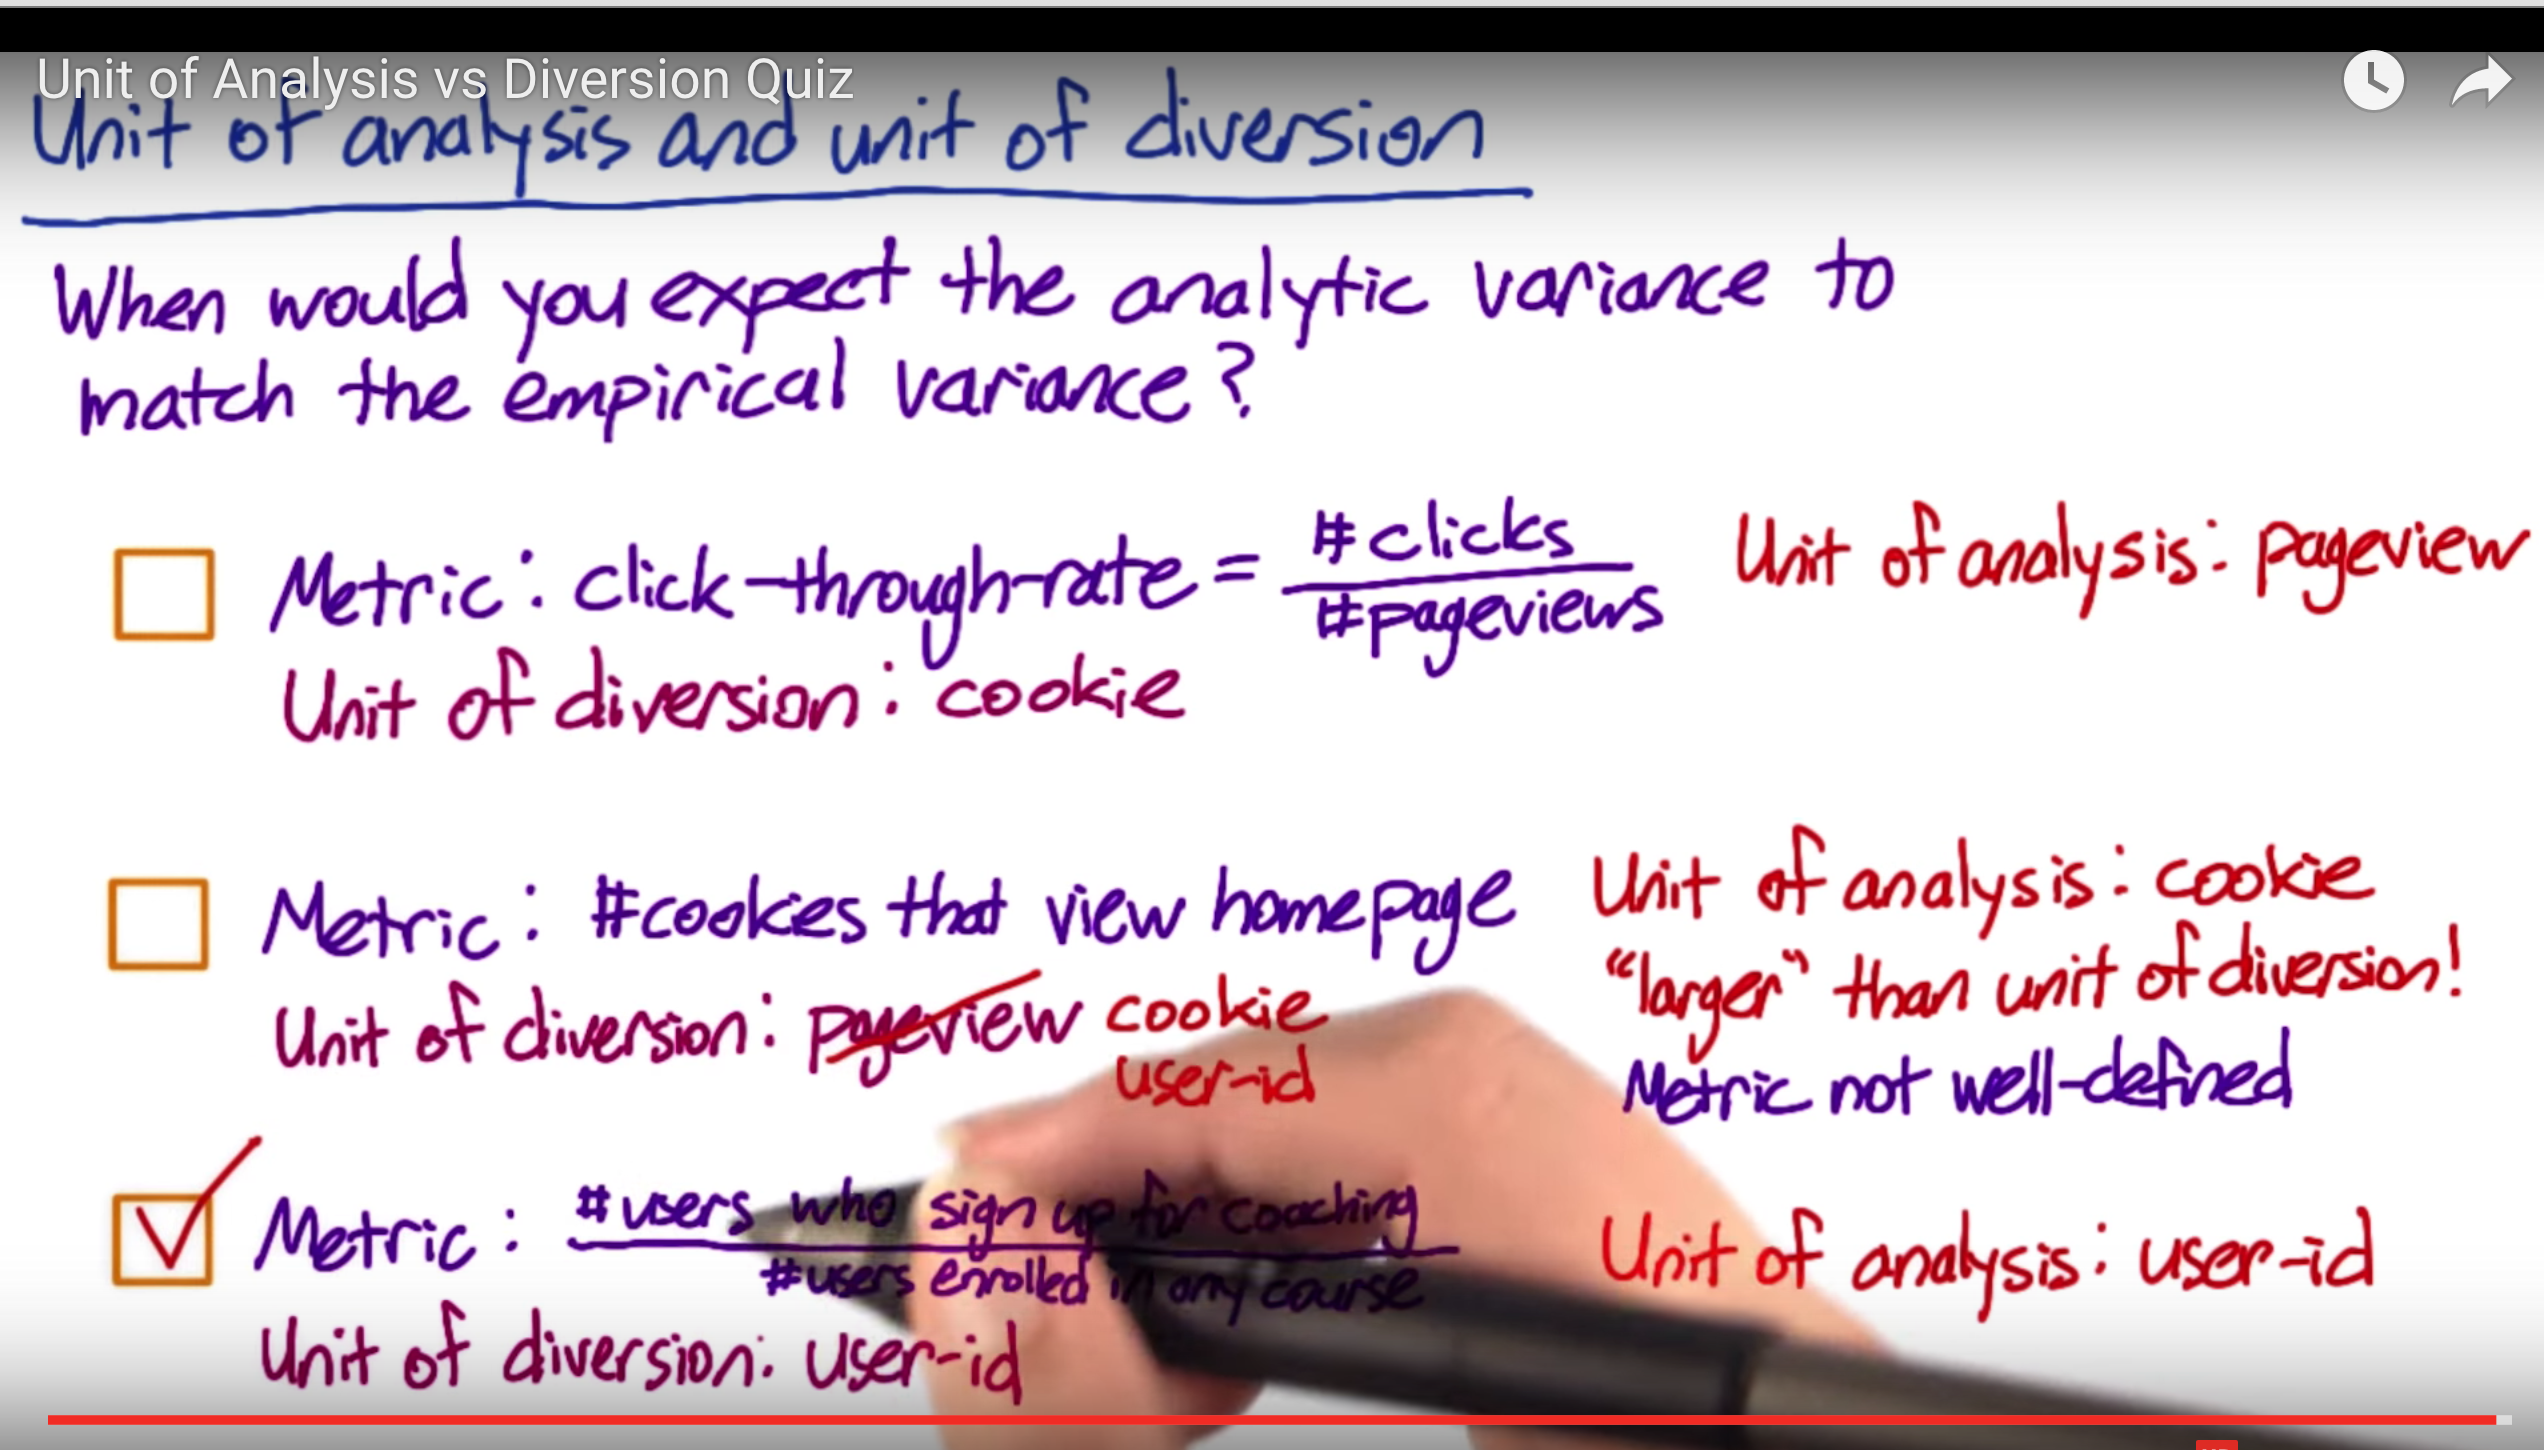 Unit of Analysis vs Diversion Quiz
Unit of analysis and unit of diversion
When would you expect the analytic variance to
match the empirical variance?
Metric: click-through-rate = #clicks
#pageviews
Unit of analysis: pageview
Unit of diversion: cookie
Metric: #cookies that view homepage
Unit of diversion: pageview cookie
user-id
Unit of analysis: cookie
"larger" than unit of diversion!
Metric not well-defined
Metric: #users who sign up for coaching
#users enrolled in any course
Unit of analysis: user-id
Unit of diversion: user-id